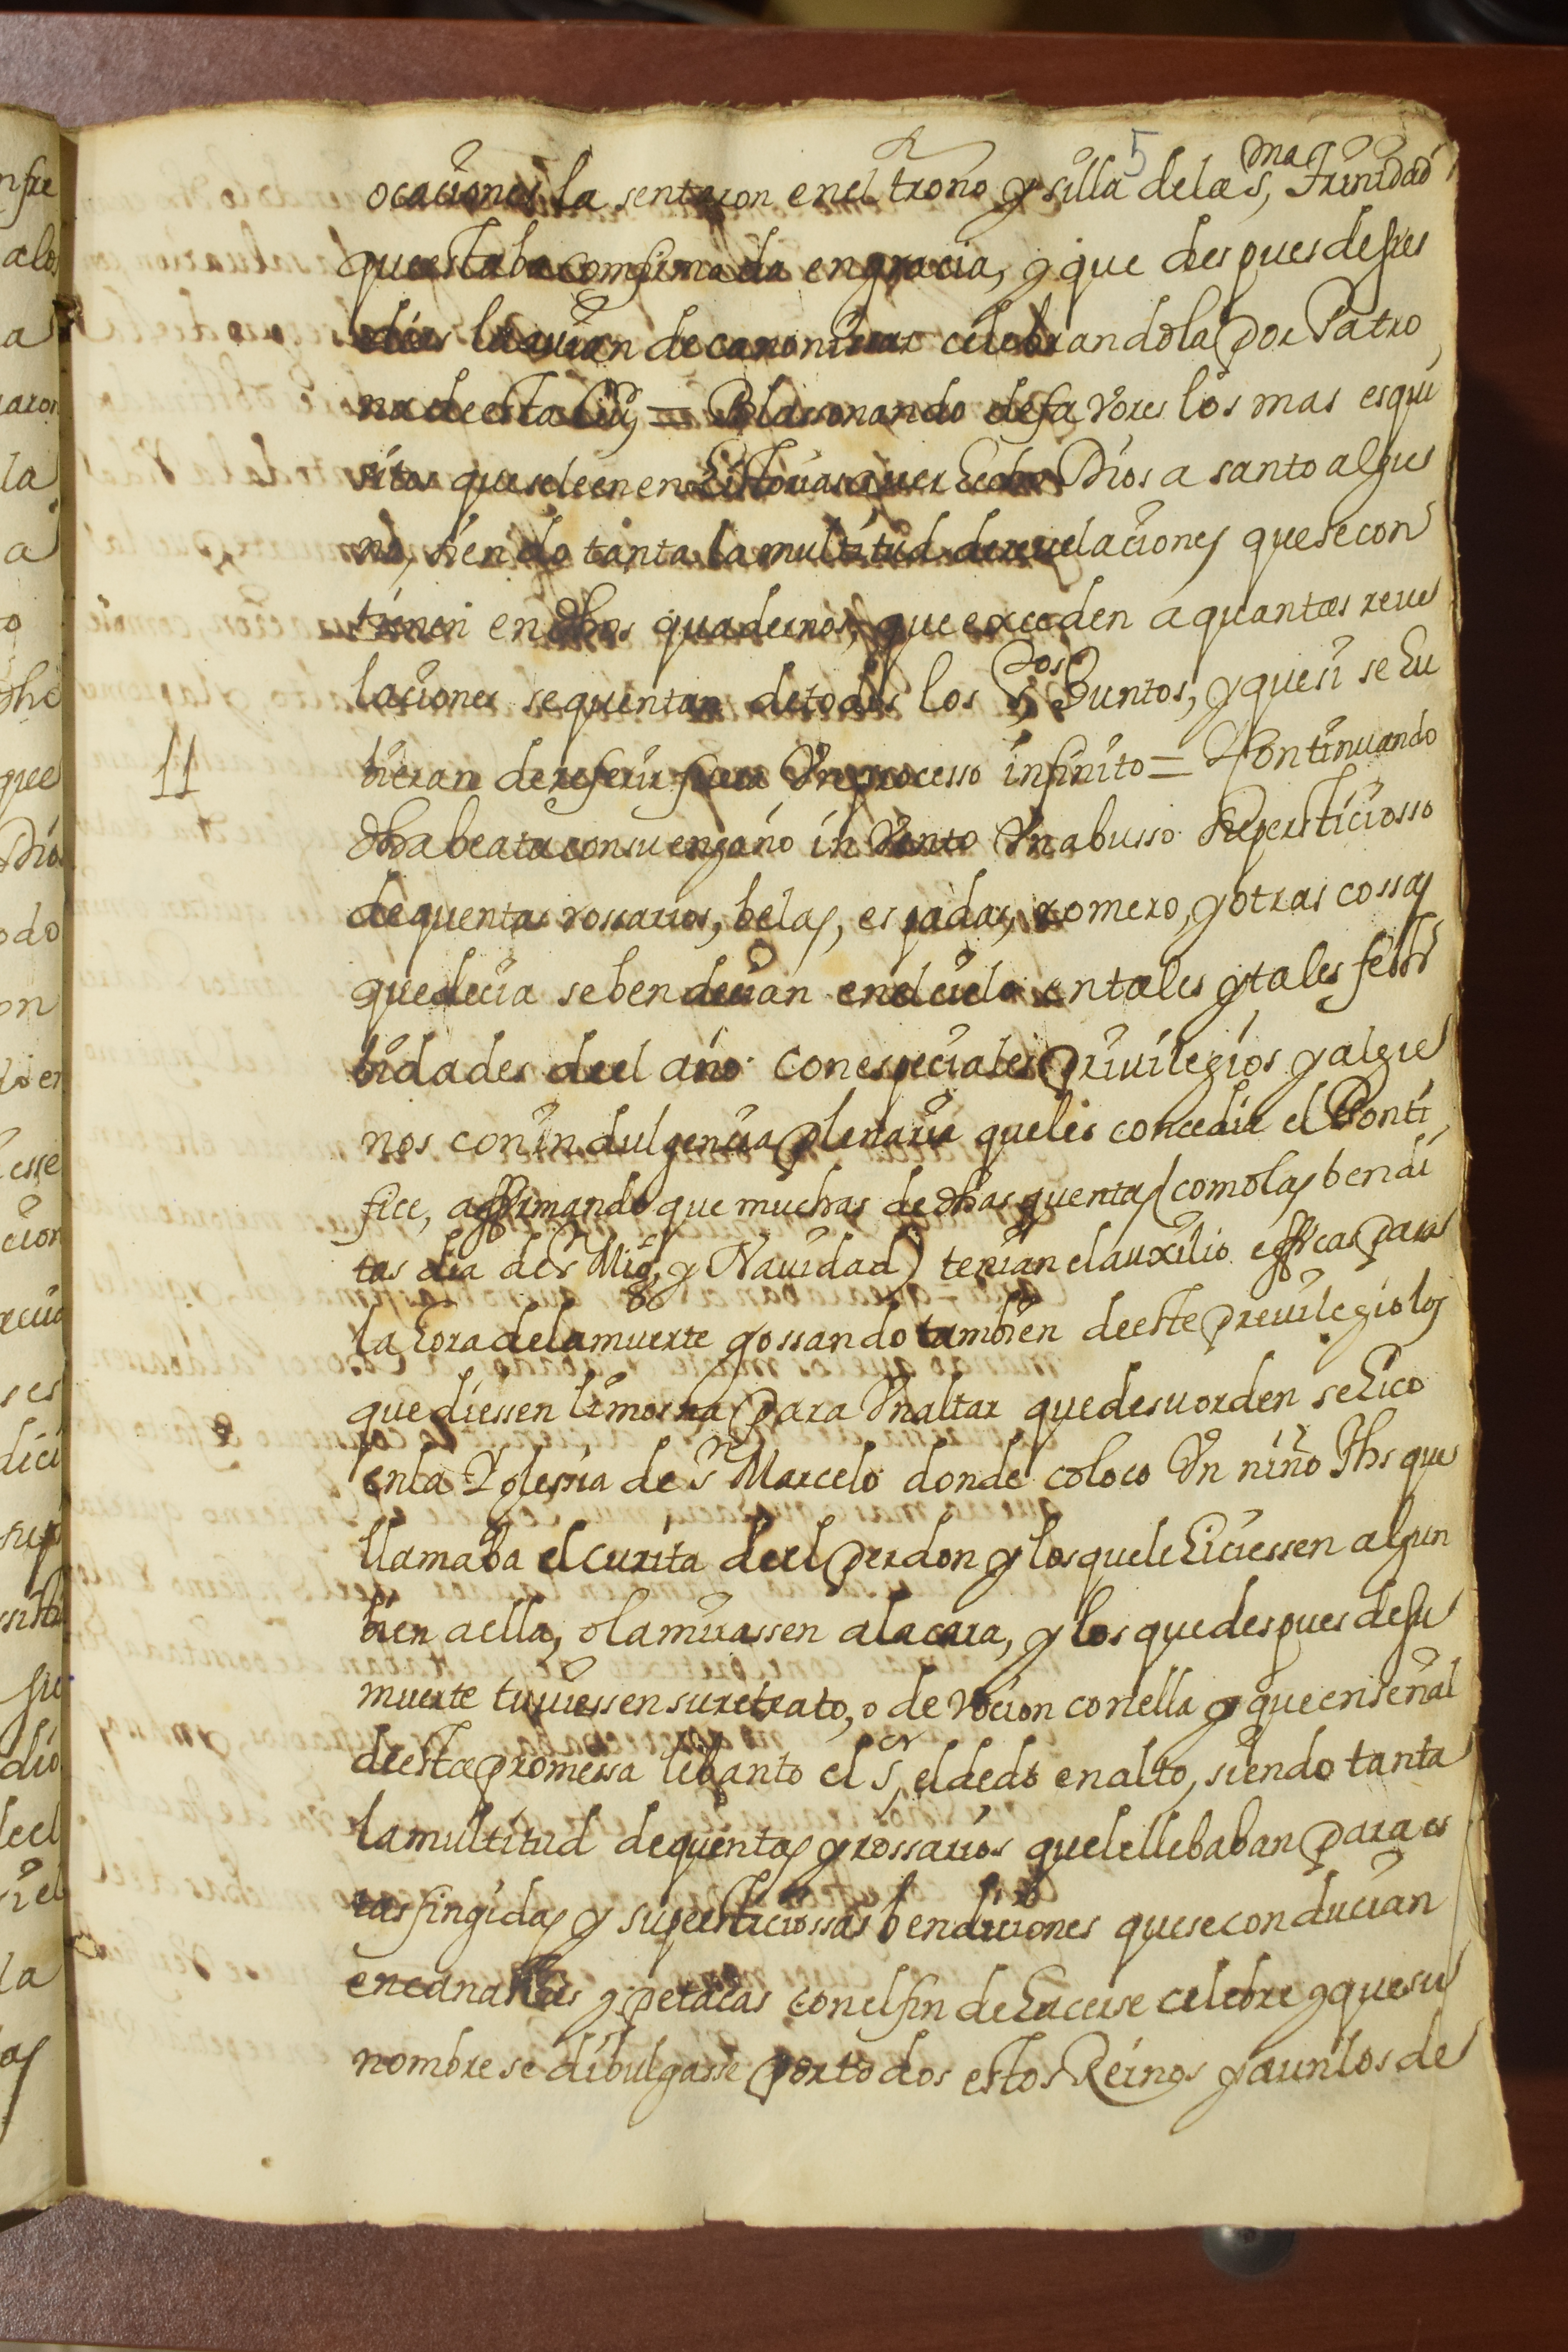 5
ocaciones la sentaron en el trono y silla de la S,ma Trinidad
que estaba comfirmada en gracia, y que des pues de sus
dias la avian de canonizar celebrandola por Patro
na de esta Ciu,d = Blassonando de favores los mas esqui
sitos que se leen en Historias aver hecho Dios a santo algu
no, siendo tanta la multitud de revelaciones que se con
tienen en dhos quadernos, que exceden a quantas reve
laciones se quentan de todos los S,tos Juntos, y que si se hu
bieran de referir fuera Un processo infinito = Y Continuando
11
dha beata con su engaño in Vento Un abusso supersticiosso
de quentas rossarios, belas, espadas, romero, y otras cossas
que decia se bendecian en el cielo en tales y tales festi
bidades de el año con especiales privilegios y algu
nos con indulgencia plenaria que les concedia el Ponti
fice, affirmando que muchas de dhas quentas (como las bendi
tas dia de Sn Mig,l y Navidad) tenian el auxilio efficas para
la hora de la muerte gossando tambien de este previlegio los
que diessen limosna para Un altar que de su orden se hico
en la Yglessia de Sn Marcelo donde coloco Un niño Jhs que
llamaba el curita de el perdon y los que le hiciessen algun
bien a ella, o la mirassen a la cara, y los que des pues de su
muerte tuviessen su retrato, o de Vocion con ella y que en señal
de esta promessa lebanto el S,or el dedo en alto, siendo tanta
la multitud de quentas y rossarios que le llebaban para es
tas fingidas y supersticiossas bendiciones que se conducian
en canastas y petacas con el fin de hacerse celebre y que su
nombre se dibulgasse por todos estos Reinos y aun los de